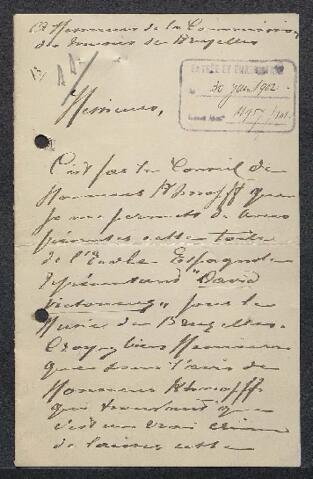 A Messieurs de la Commission
des Musées de Bruxelles
Messieurs,
ENTRÉE ET
30 juin 1902
C'est par le Conseil de
Monsieur Khnopff que
je me permets de vous
présenter cette toile
de l'Ecole Espagnole
représentant "David
victorieux" pour le
Musée de Bruxelles.
Croyez bien Messieurs
que sans l'avis de
Monsieur Khnopff
qui trouvait que
c'est un vrai crime
de laisser cette